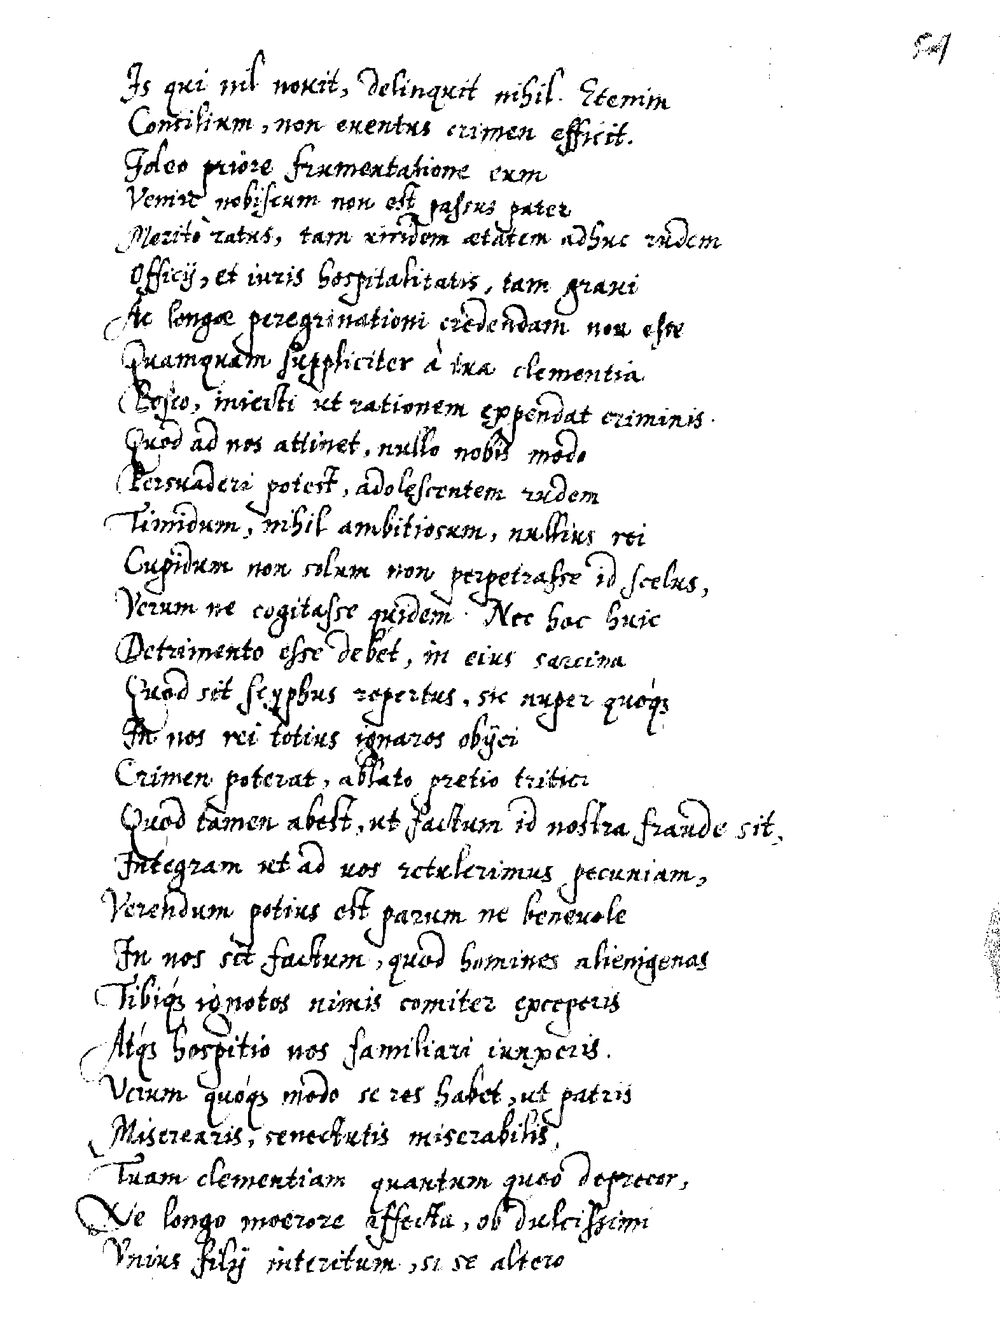 54
Is qui nil nouit, delinquit nihil. Etenim
Consilium, non euentus crimen efficit.
Ideo priore frumentatione eum
Venire nobiscum non est passus pater
Merito ratus, tam viridem ætatem adhuc rudem
Officij, et iuris hospitalitatis, tam graui
Ac longæ peregrinationi credendam non esse
Quamquam suppliciter à tua clementia
Posco, iniecti ut rationem expendat criminis.
Quod ad nos attinet, nullo nobis modo
Persuaderi potest, adolescentem rudem
Timidum, nihil ambitiosum, nullius rei
Cupidum non solum non perpetrasse id scelus,
Verum ne cogitasse quidem. Nec hoc huic
Detrimento esse debet, in eius sarcina
Quod sit scyphus repertus, sic nuper quoq́s
In nos rei totius ignaros obijci
Crimen poterat, ablato pretio tritici
Quod tamen abest, ut factum id nostra fraude sit,
Integram ut ad uos retulerimus pecuniam,
Verendum potius est parum ne beneuole
In nos sit factum, quod homines alienigenas
Tibiq́s ignotos nimis comiter exceperis
Atq́s hospitio nos familiari iunxeris.
Verum quoq́s modo se res habet, ut patris
Miserearis, senectutis miserabilis,
Tuam clementiam quantum queo deprecor,
Ne longo moerore affecta, ob dulcissimi
Vnius filij interitum, si se altero